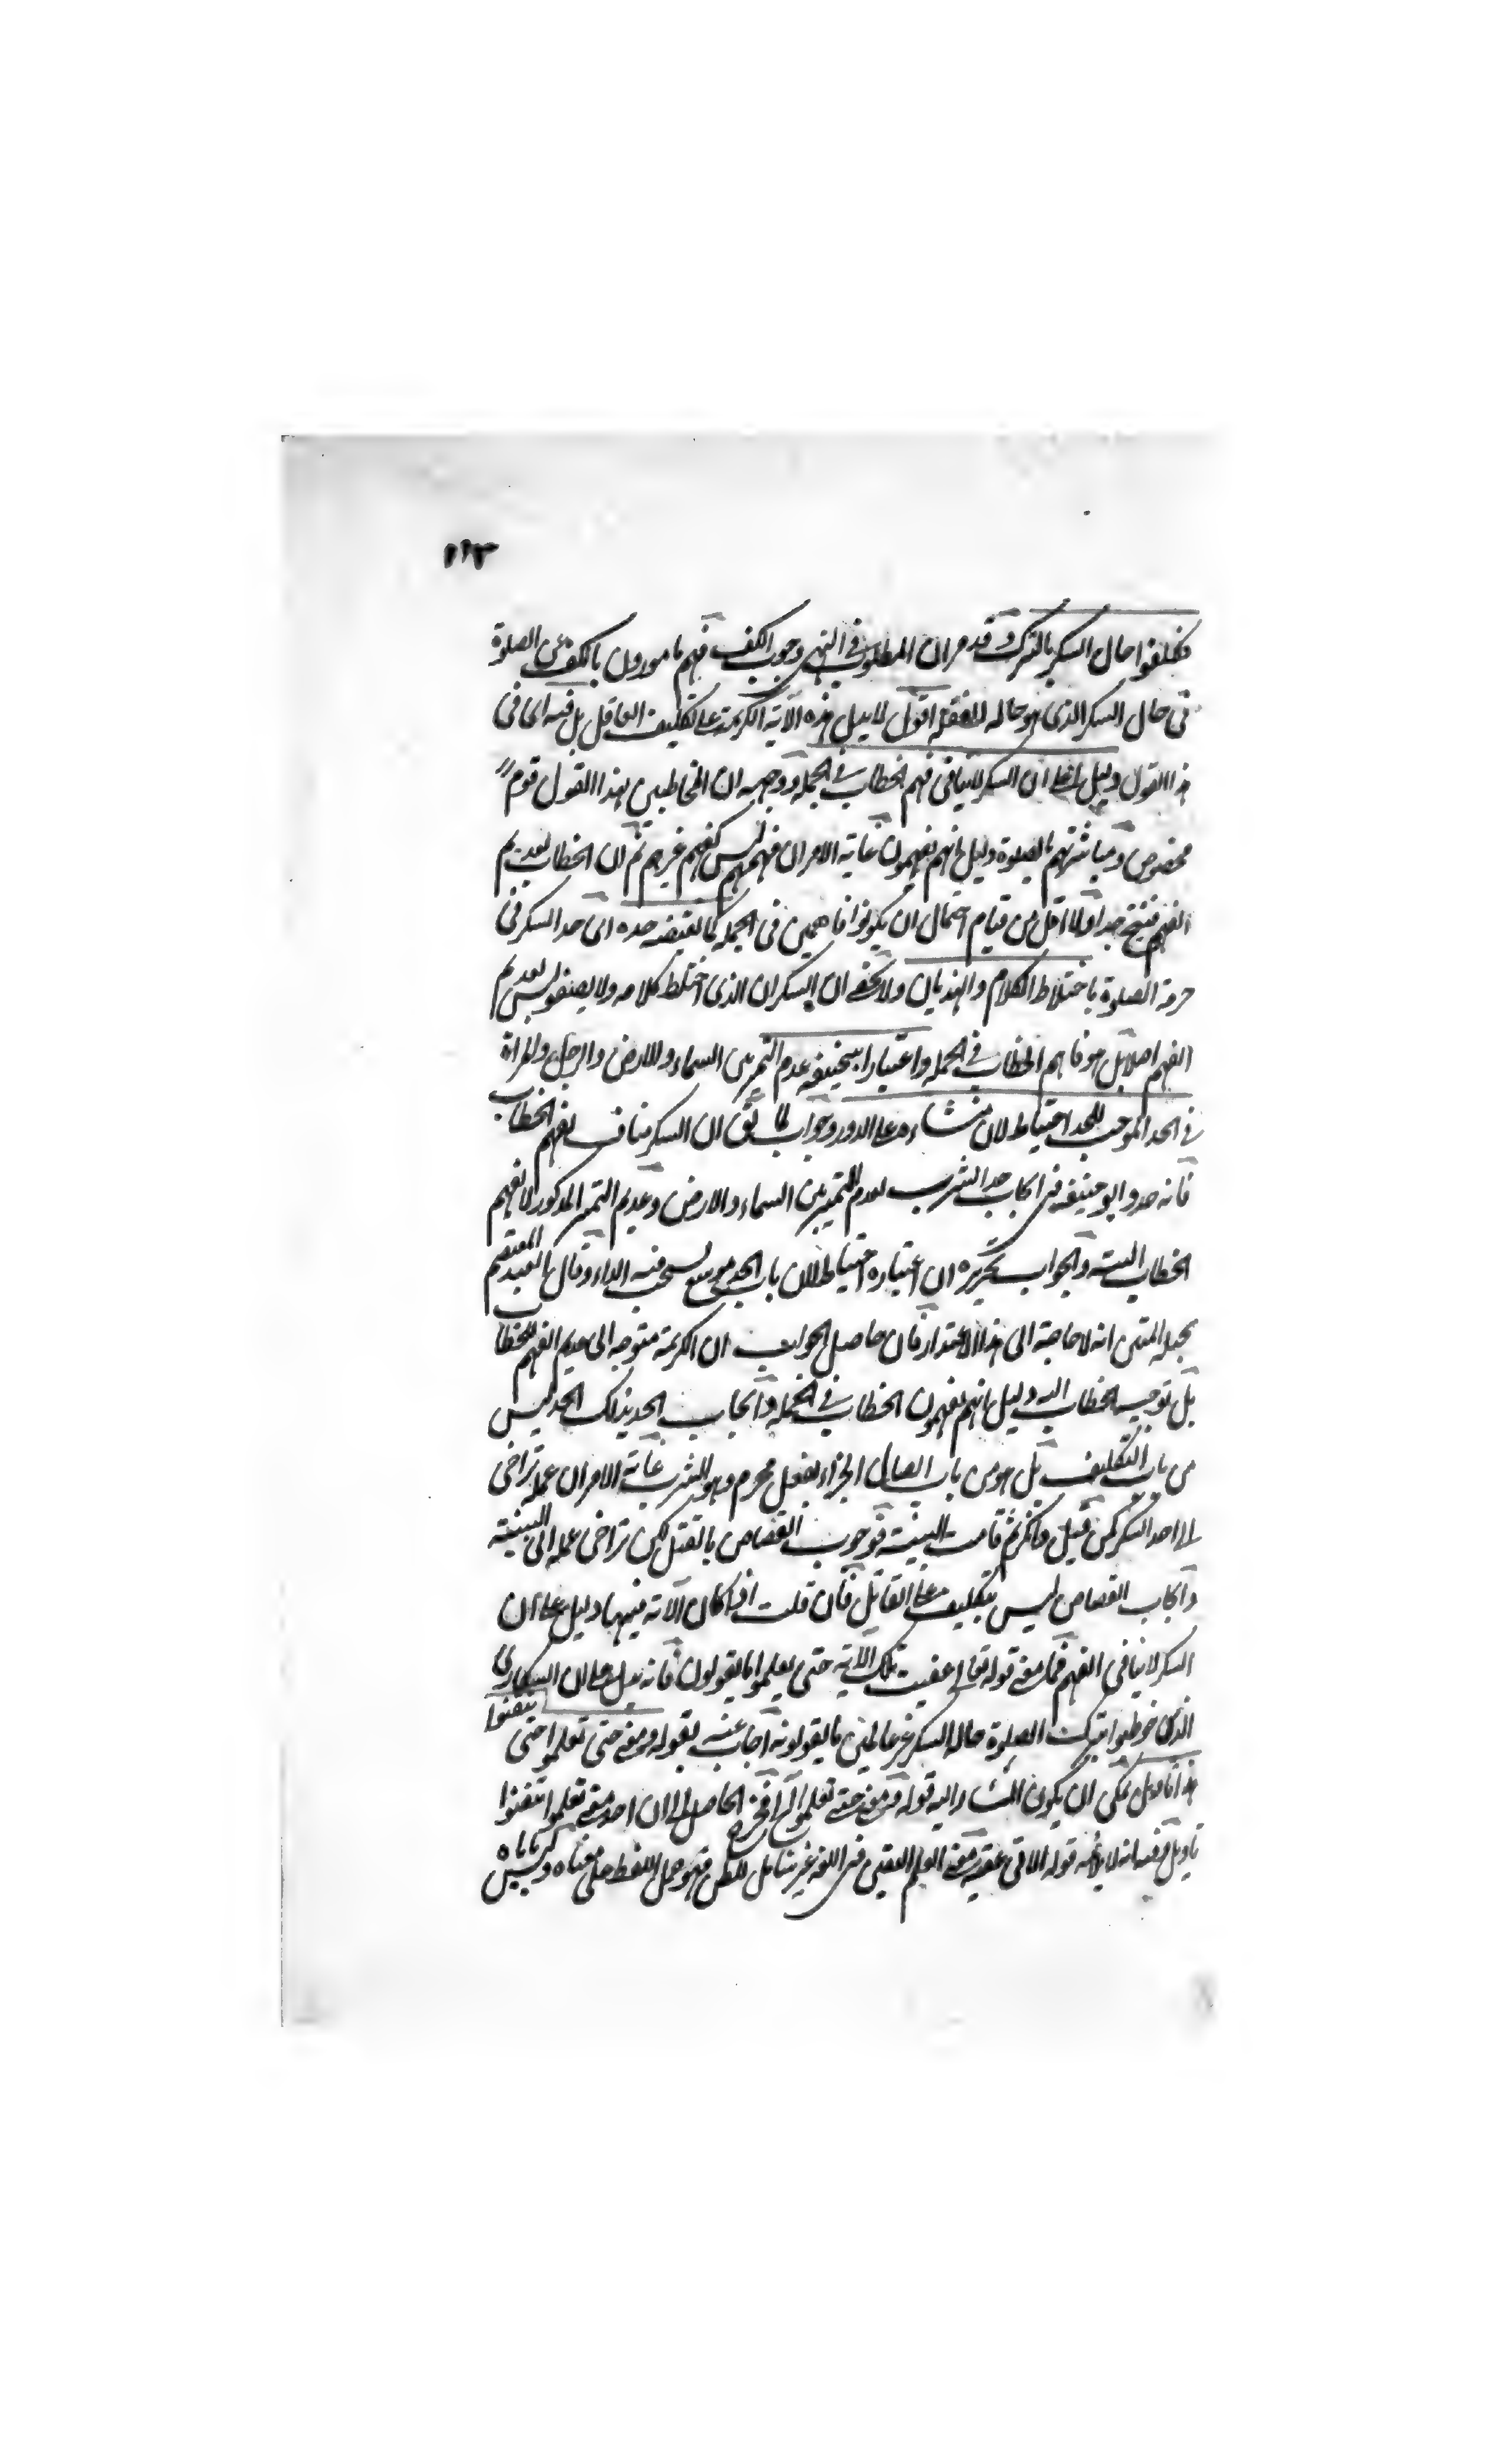 ١١٣
فكلفوا حال السكر بالترك وقد مر ان المطلوب في النهي وجوب الكف فهم مامورون بالكف عن الصلوة
في حال السكر الذي هو حالة الغفلة اقول لا يدل هذه الآية الكريمة على تكليف الغافل بل فيه اي في
هذا القول دليل على ان السكر لا ينافي فهم الخطاب في الجملة ووجهه ان المخاطبين بهذا القول قوم
مخصوص ومباشرتهم بالصلوة دليل انهم يفهمون غاية الامر ان فهمهم ليس كفهم غيرهم ثم ان الخطاب لعديم
الفهم قبيح جدا ولا اقل من قيام احتمال ان يكونوا فاهمين في الجملة كما يقتضيه حده اي حد السكر في
حرمة الصلوة باختلاط الكلام والهذيان ولا يخفى ان السكران الذي اختلط كلامه ولا يصفو ليس بعديم
الفهم اصلا بل هو فاهم الخطاب في الجملة واعتبار ابي حنيفة عدم التميز بين السماء والارض والرجل والمراة
في الحد الموجب للحد احتياط لان مبناه على الدرء وجواب لما يق ان السكر مناف لفهم الخطاب
فانه حدد ابو حنيفة في ايجاب حد الشرب بعدم التميز بين السماء والارض وعديم التميز المذكور لا يفهم
الخطاب البتة والجواب تحريره ان اعتباره احتياط لان باب الحد موسع يستحب فيه الدرء وقال العبد المعتصم
بحبله المتين انه لا حاجة الى هذا الاعتذار فان حاصل الجواب ان الكريمة متوجه الى عديم الفهم للخطاب
بل توجيه الخطاب اليه دليل انهم يفهمون الخطاب في الجملة وايجاب الحد بذلك الحد ليس
من باب التكليف بل هو من باب ايصال الجزاء بفعل محرم وهو الشرب غاية الامر ان عمله تراخى
الى حد السكر كمن قتل وانكر ثم قامت البينة فوجوب القصاص بالقتل لكن تراخى عمله الى البينة
وايجاب القصاص ليس بتكليف على القاتل فان قلت اذا كان الآية فيها دليل على ان
السكر لا ينافي الفهم فما معنى قوله تعالى عقيب تلك الآية حتى يعلموا ما يقولون فانه يدل على ان السكارى
الذين خوطبوا بترك الصلوة حالة السكر غير عالمين ما يقولونه اجاب عنه بقوله ومعنى حتى تعلموا حتى تتيقنوا
هذا تاويل يمكن ان يكون المشار اليه قوله ومعنى حتى تعلموا الى اخره الحاصل ان احد معنى تعلموا تتيقنوا
تاويل وفيه انه لا يلائمه قوله الآتي عقيبه معنى العلم اليقين في اللغة غير شامل للظن فهو حمل اللفظ على معناه وليس